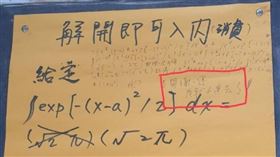 解開即可入內(消費)
給定
∫exp[-(x-a)²/2] dx =
(√2π)(√2π)